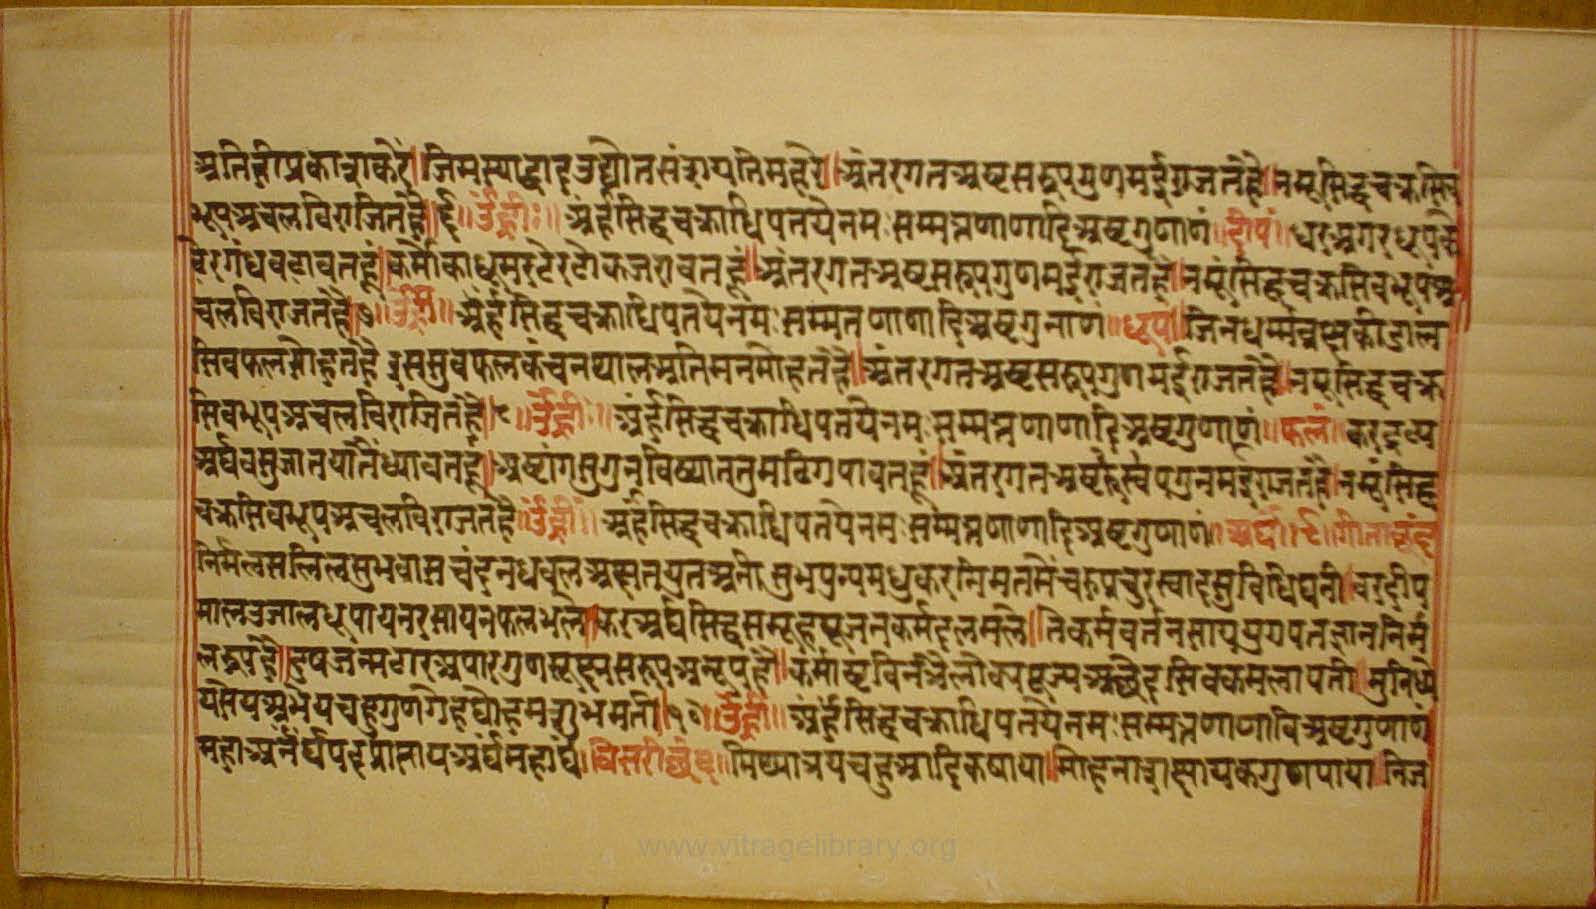 अतिहीप्रकाशकरैं॥जिमस्याद्वादउद्योतसंशयतिमहरै॥अंतरगतअष्टसरूपगुणमईराजतहै॥नमूंसिद्धचक्रसिव
भूपअचलविराजितहै॥ ॐह्रीः॥ अर्हंसिद्धचक्राधिपतयेनमः सम्मत्तणाणादिअष्टगुणाणं॥दीपं॥धरअगरधूप
वैरगंधवठावतहूं॥कर्मोकाधूमर अंतरगतअष्टसरूपगुणमईराजतहै॥नमूंसिद्धचक्रसिवभूपअ
चलविराजतहै॥७॥ॐह्रीं॥ अर्हंसिद्धचक्राधिपतयेनमः सम्मतणाणादिअष्टगुनाणं॥धूपं॥जिनधर्म्मवृषकीडाल
सिवफलसोहतहै इससुवफलकंचनथालअतिमनमोहतहै॥अंतरगतअष्टसरूपगुणमईराजतहै॥नमूंसिद्धचक्र
सिवभूपअचलविराजितहै॥८॥ॐह्रीं॥ अर्हंसिद्धचक्राधिपतयेनमः सम्मत्तणाणादिअष्टगुणाणं॥फलं॥करद्रव्य
अर्घवसुजातयातैंध्यावतहूं॥अष्टांगसुगुनविख्याततुमढिगपावतहूं॥अंतरगतअष्टसरूपगुनमईराजतहै॥नमूंसिद्ध
चक्रसिवभूपअचलविराजतहै॥ॐह्रीं॥ अर्हंसिद्धचक्राधिपतयेनमः सम्मत्तणाणादिअष्टगुणाणं॥अर्घं॥९॥गीताछंद
निर्मलसलिलसुभवासचंदनधवलअक्षतयुतअनी॥सुभपुष्पमधुकरनिमतसैंचरुप्रचुरस्वादसुविधिघनी॥वरदीप
मालउजालधूपायनरसायनफलभलै॥करअर्घसिद्धसमूहपूजनकर्मदलमलै॥तेकर्मवर्तनसायुप्रगपतज्ञाननिर्म
लरूपहै॥दुषजन्मटारअपारगुणसूक्ष्मसरूपअनूपहै॥कर्माष्टविनत्रैलोक्यपूज्यअछेदसिवकमलापती॥मुनिध्ये
यसेयअभेयचहुगुणगेहद्योहमशुभमती॥१०॥ॐह्रीं॥ अर्हंसिद्धचक्राधिपतयेनमः सम्मत्तणाणादिअष्टगुणाणं
महाअनर्घपदप्राप्तायअर्घंमहार्घं॥ मिथ्यात्रयचहुआदिकषाया॥मोहनाशक्षायकगुणपाया॥निज
www.vitragelibrary.org